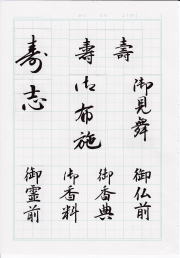 壽
壽
寿志
御見舞
御布施
御仏前
御香典
御香料
御霊前